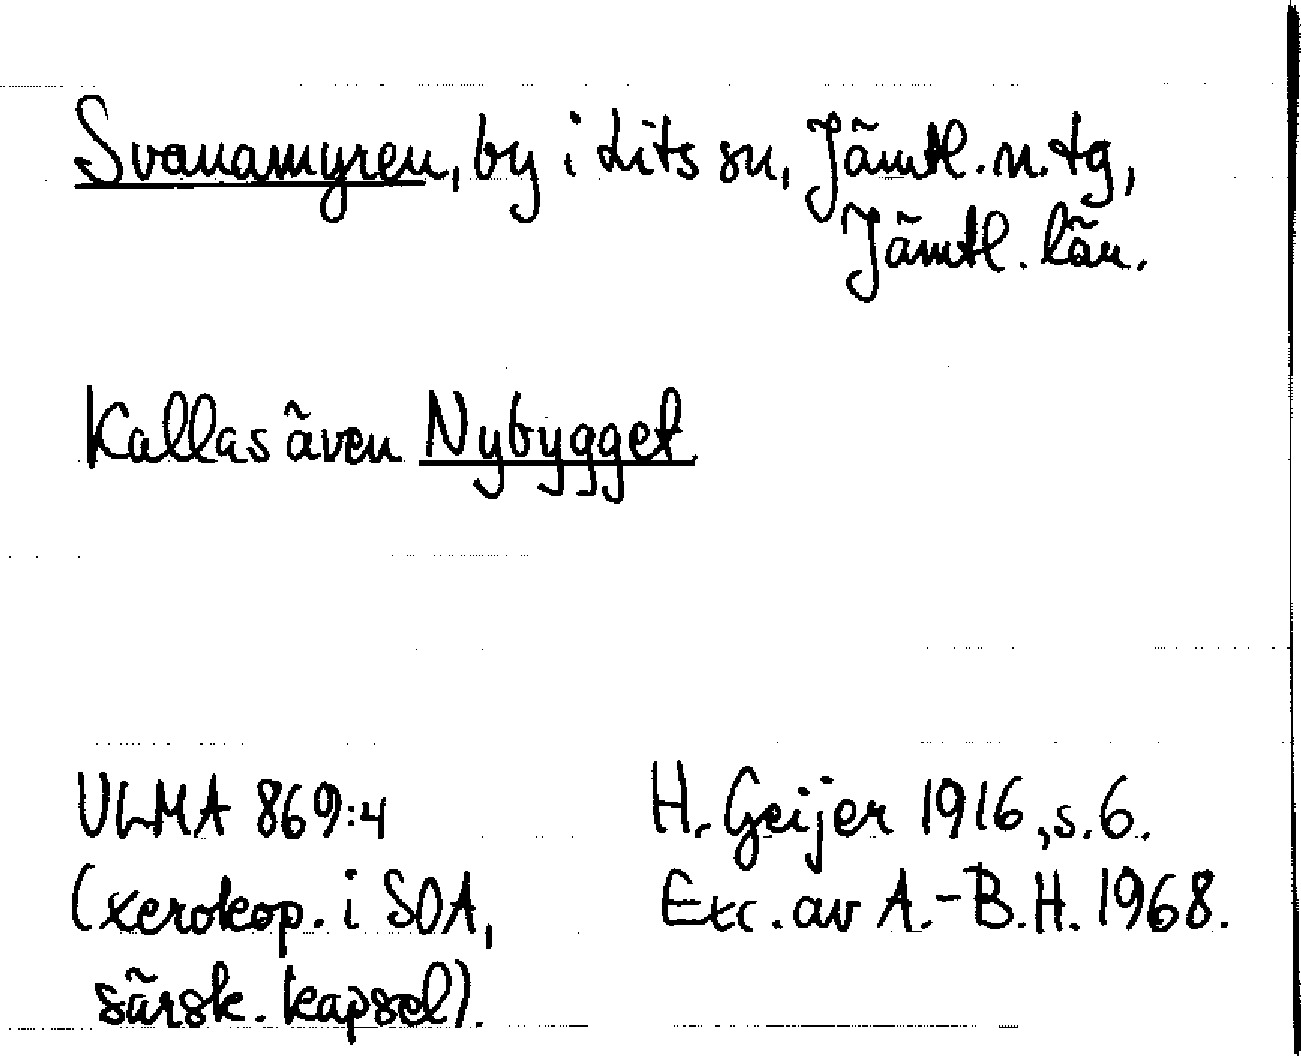 Svanamyren, by i Lits sn, Jämtl. n. tg,
Jämtl. län.
Kallas även Nybygget
ULMA 869:4
(xerokop. i SOA,
särsk. kapsel).
H. Geijer 1916, s. 6.
Exc. av A.-B.H. 1968.